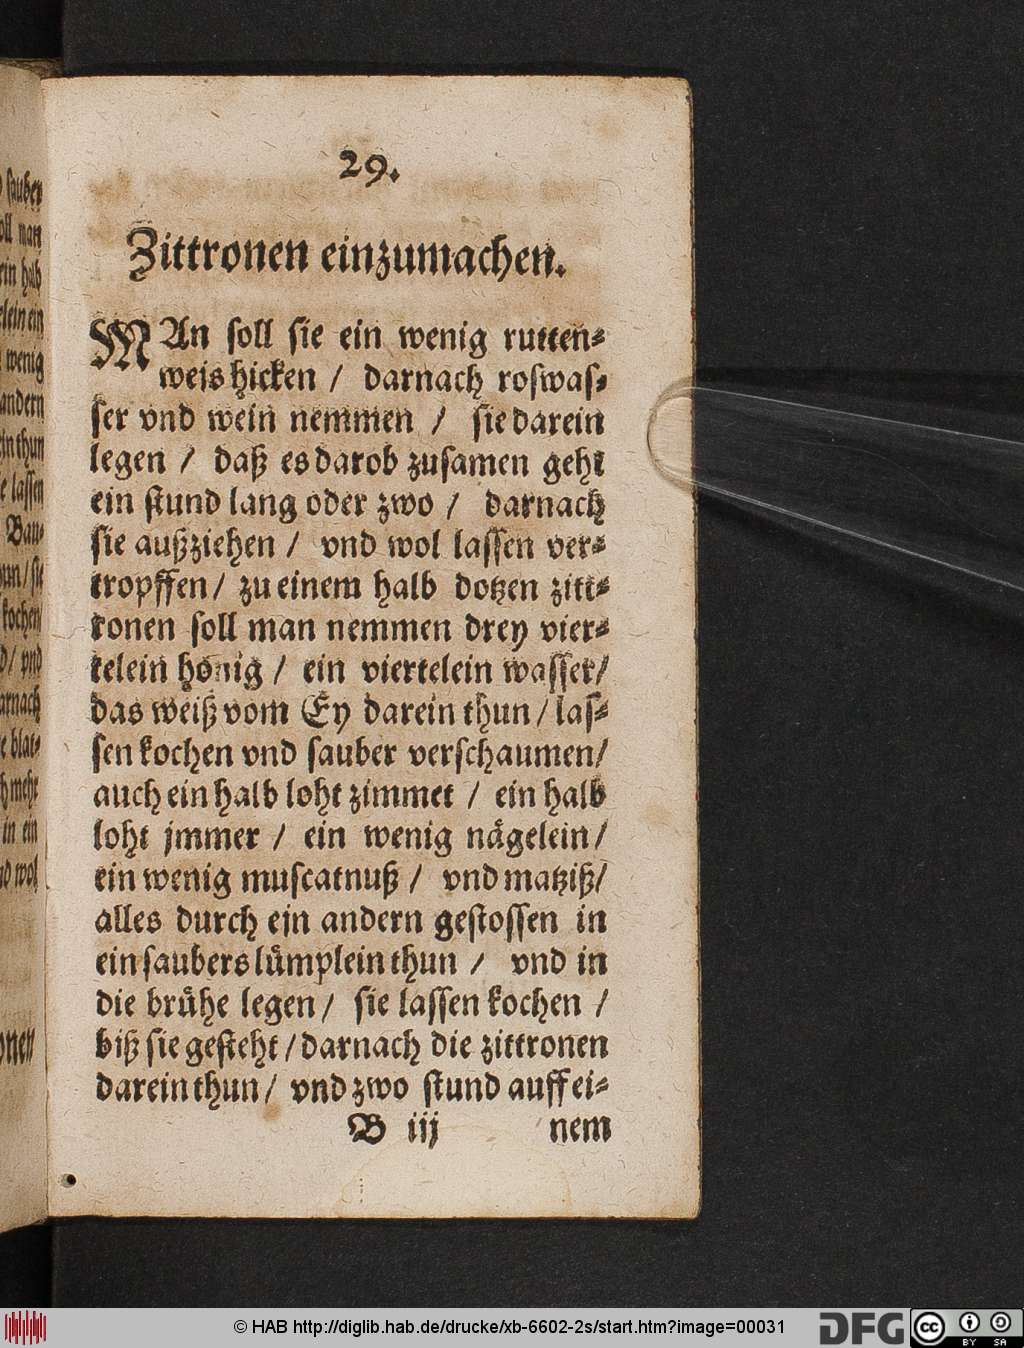 29.
Zittronen einzumachen.
MAn soll sie ein wenig rutten-
weis hicken / darnach roswas-
ser vnd wein nemmen / sie darein
legen / daß es darob zusamen geht
ein stund lang oder zwo / darnach
sie außziehen / vnd wol lassen ver-
tropffen / zu einem halb dotzen zitt-
ronen soll man nemmen drey vier-
telein honig / ein viertelein wasser /
das weiß vom Ey darein thun / las-
sen kochen vnd sauber verschaumen /
auch ein halb loht zimmet / ein halb
loht jmmer / ein wenig nägelein /
ein wenig muscatnuß / vnd matziß /
alles durch ein andern gestossen in
ein saubers lümplein thun / vnd in
die brühe legen / sie lassen kochen /
biß sie gesteht / darnach die zittronen
darein thun / vnd zwo stund auff ei-
B iij nem
© HAB http://diglib.hab.de/drucke/xb-6602-2s/start.htm?image=00031
DFG
cc BY SA